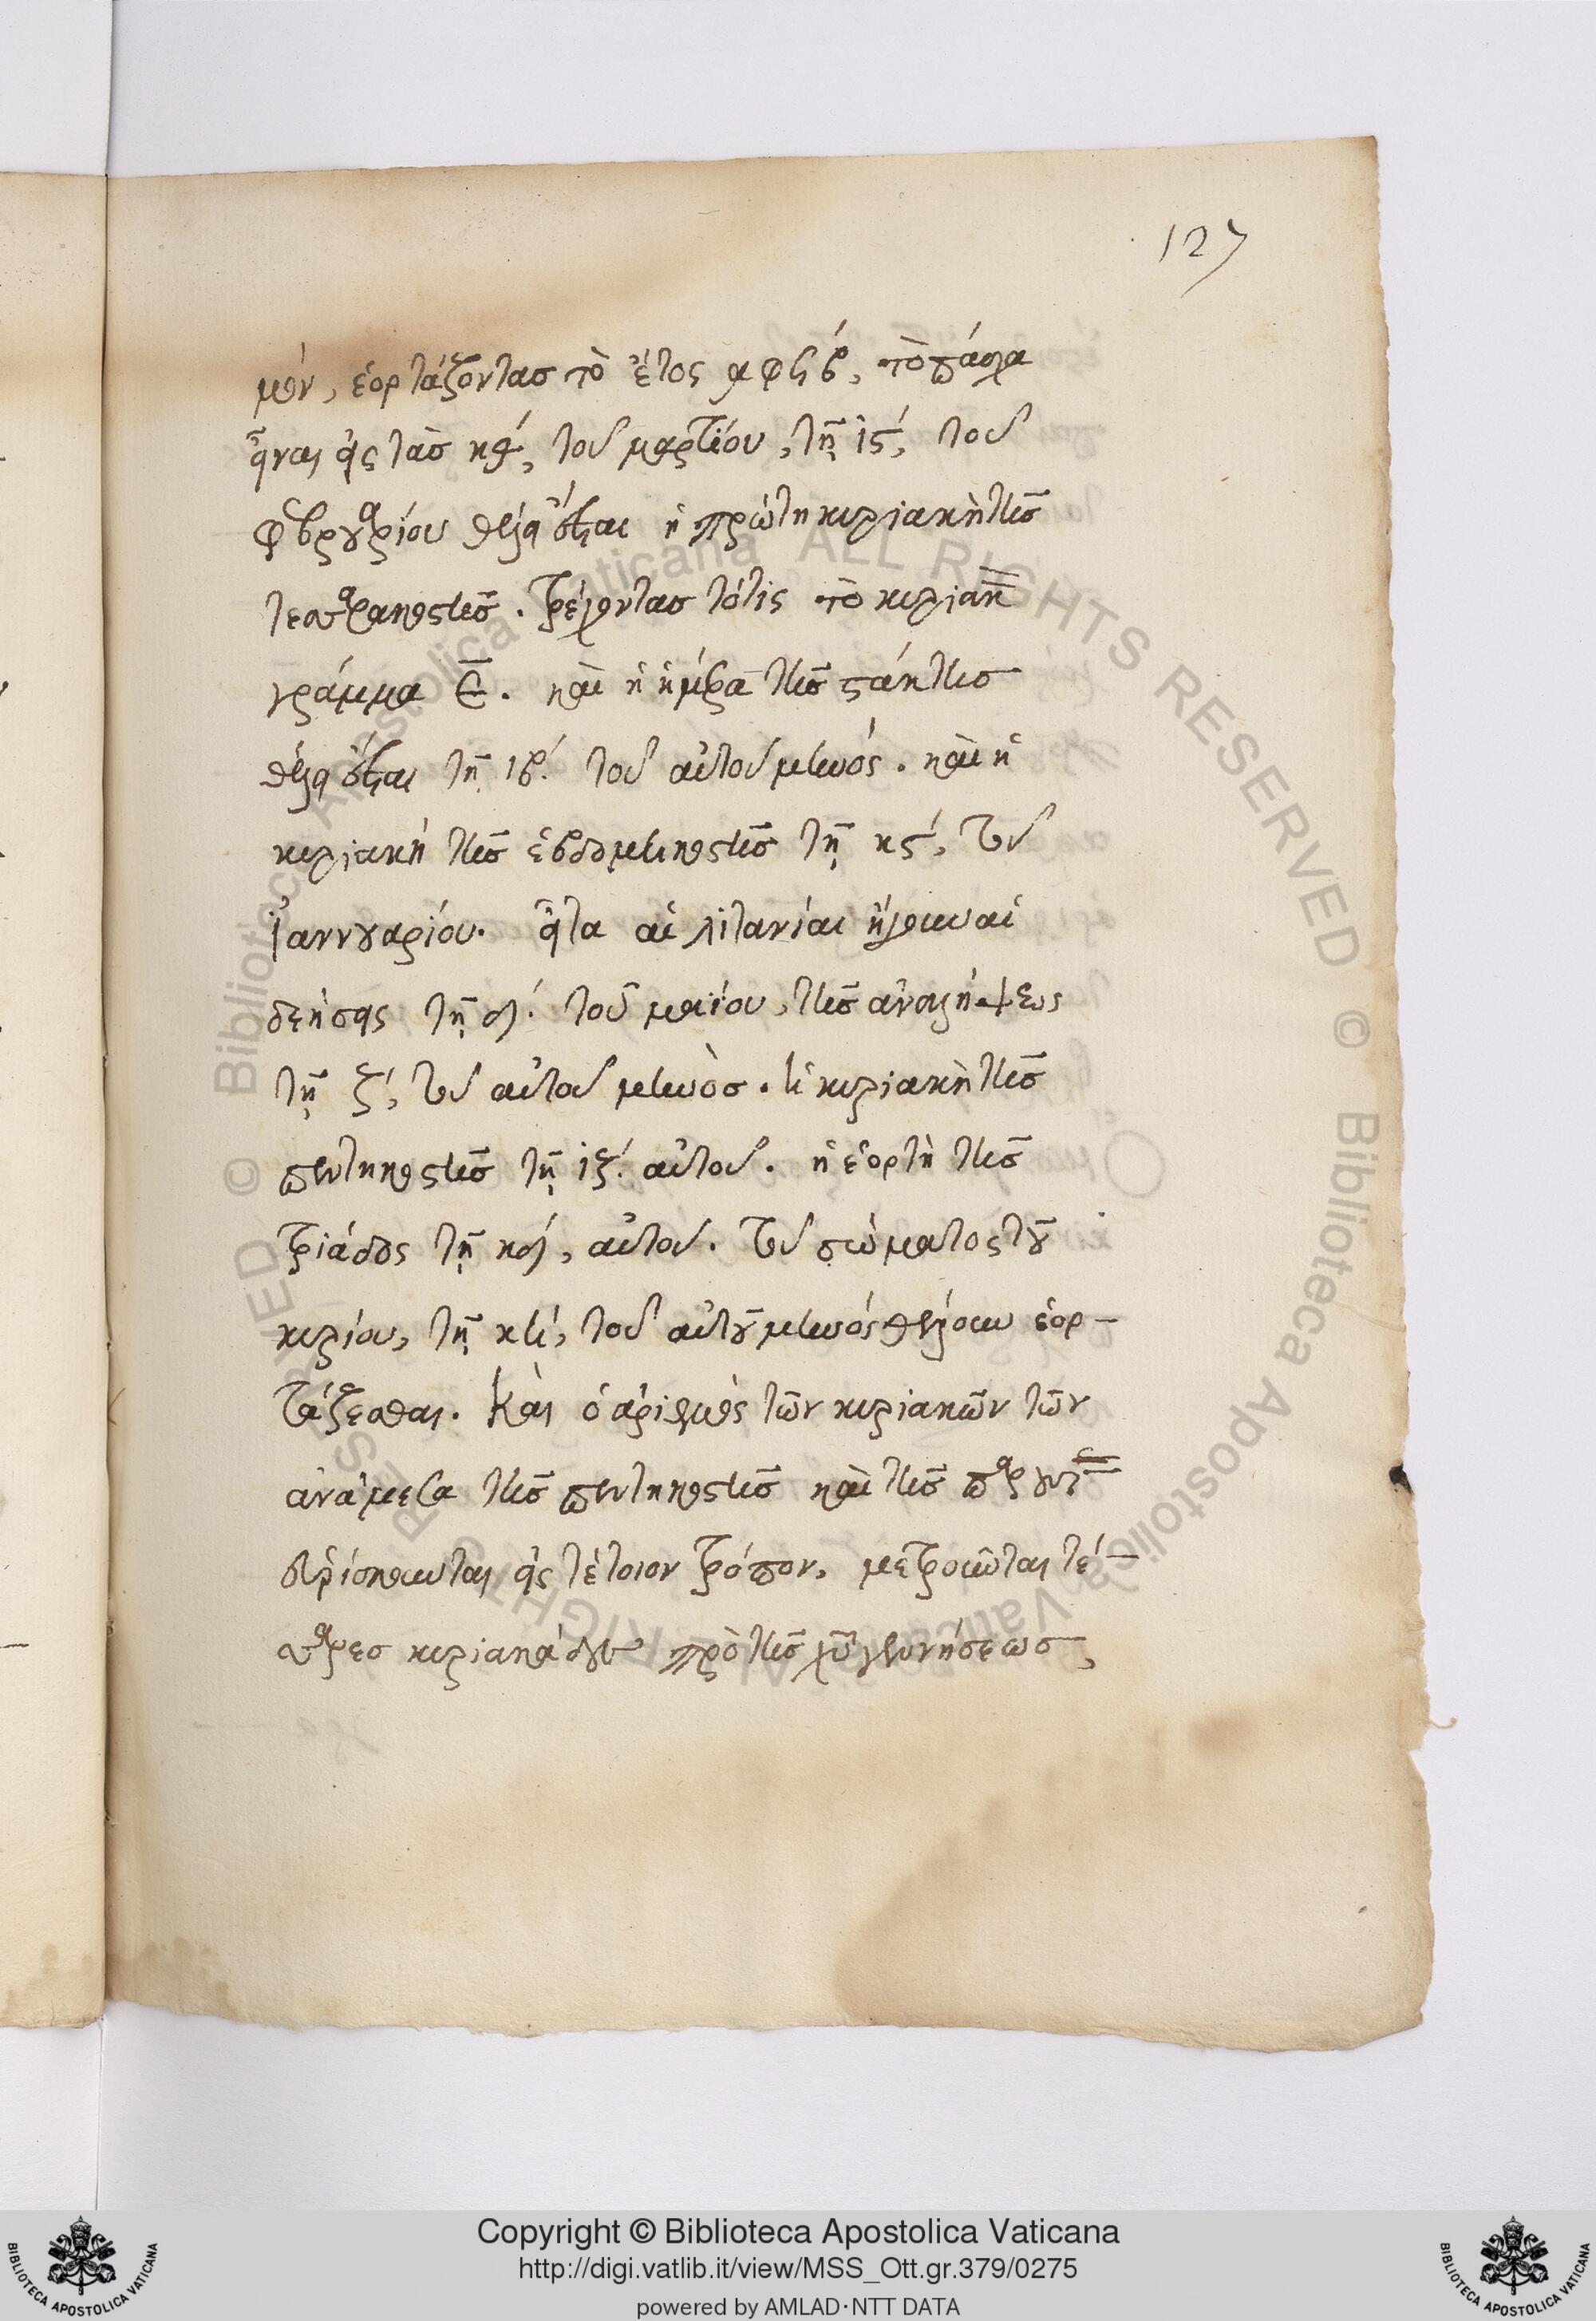 127
μόν, ἑορτάζοντασ τὸ ἔτος αφϟβ, τὸ πάσχα
εἶναι εἰς τὰσ κθ΄, τοῦ μαρτίου, τῇ ις΄, τοῦ
φεβρουαρίου θέλει ἔσται ἡ πρώτη κυριακὴ τῆσ
τεσσαρακοστῆσ. τρέχοντασ τότις τὸ κυριακ
γράμμα ε. καὶ ἡ ἡμέρα τῆσ στάκτησ
θέλει ἔσται τῇ ιβ΄. τοῦ αὐτοῦ μηνός. καὶ ἡ
κυριακή τῆσ ἑβδομηκοστῆσ τῇ κς΄, τοῦ
ἰαννουαρίου. εἶτα αἱ λιτανίαι ἤγουν αἱ
δεήσεις τῇ δ΄. τοῦ μαΐου, τῆσ ἀναλήψεως
τῇ ζ΄, τοῦ αὐτοῦ μηνὸσ. ἡ κυριακὴ τῆσ
πεντηκοστῆσ τῇ ιζ΄. αὐτοῦ. ἡ ἑορτὴ τῆσ
τριάδος τῇ κδ΄, αὐτοῦ. τοῦ σώματος τοῦ
κυρίου, τῇ κη΄, τοῦ αὐτοῦ μηνός θέλουν ἑορ-
τάζεσθαι. Καὶ ὁ ἀριθμὸς τῶν κυριακῶν τῶν
ἀνάμεσα τῆσ πεντηκοστῆσ καὶ τῆσ
εὑρίσκουνται εἰς τέτοιον τρόπον. μετροῦνται τέ-
σσαρεσ κυριακάδες πρὸ τῆσ χυ γεννήσεωσ,
Copyright © Biblioteca Apostolica Vaticana
http://digi.vatlib.it/view/MSS_Ott.gr.379/0275
powered by AMLAD·NTT DATA